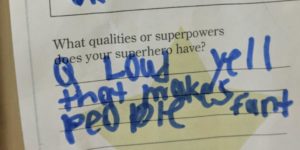 What qualities or superpowers
does your superhero have?
a Loud yell
that makes
people fant